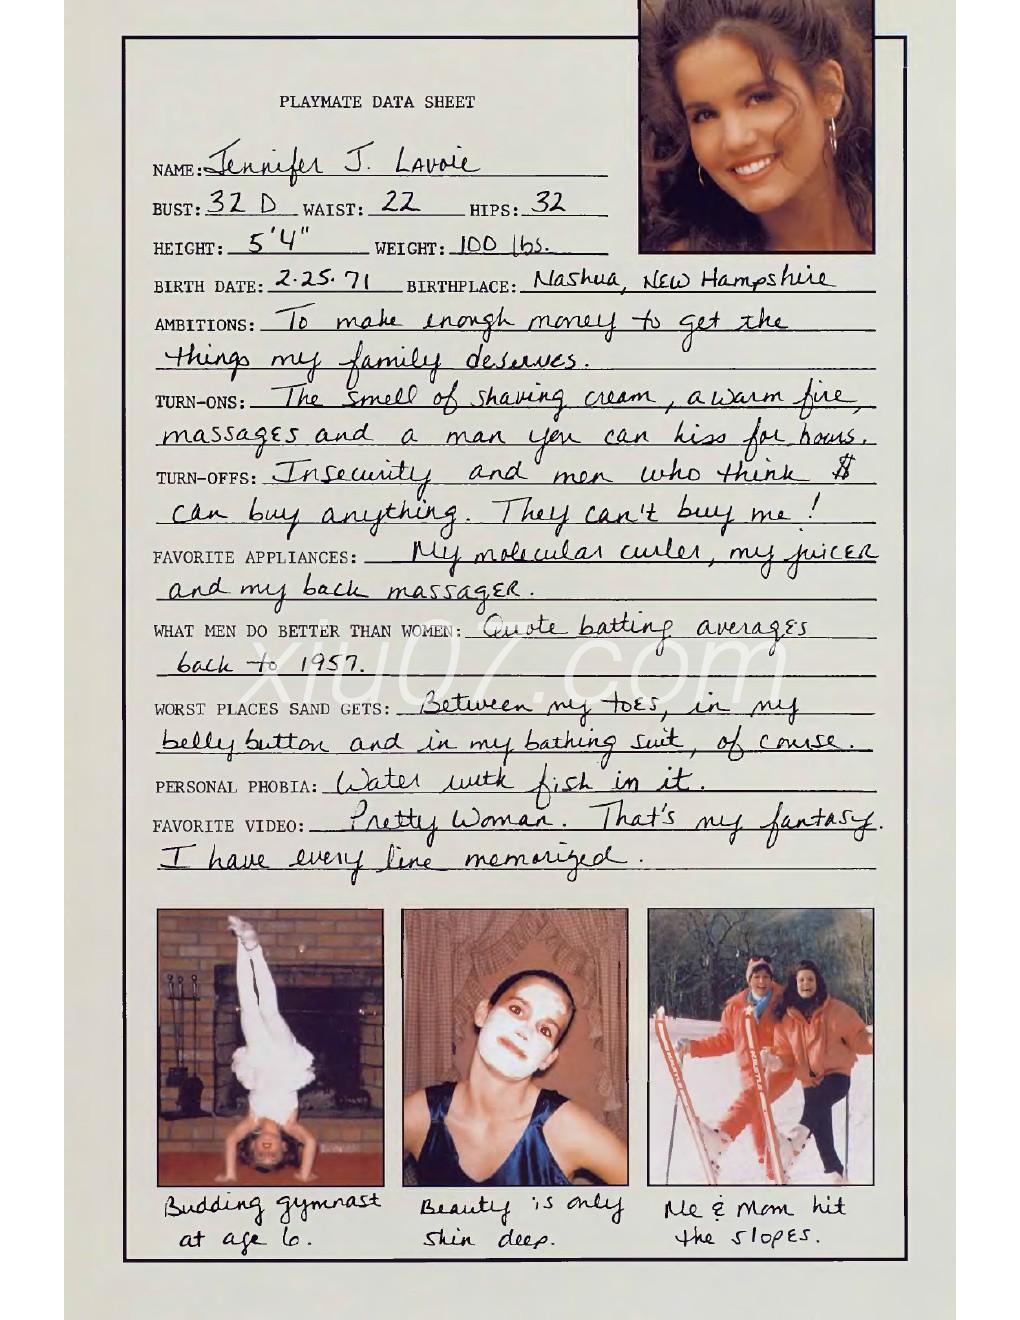 PLAYMATE DATA SHEET
NAME: Jennifer J. Lavoie
BUST: 32 D WAIST: 22 HIPS: 32
HEIGHT: 5'4" WEIGHT: 100 lbs.
BIRTH DATE: 2.25.71 BIRTHPLACE: Nashua, New Hampshire
AMBITIONS: To make enough money to get the
things my family deserves.
TURN-ONS: The smell of shaving cream, a warm fire,
massages and a man you can kiss for hours.
TURN-OFFS: Insecurity and men who think $
can buy anything. They can't buy me!
FAVORITE APPLIANCES: My molecular curler, my juicer
and my back massager.
WHAT MEN DO BETTER THAN WOMEN: Quote batting averages
back to 1957.
xiu07.com
WORST PLACES SAND GETS: Between my toes, in my
belly button and in my bathing suit, of course.
PERSONAL PHOBIA: Water with fish in it.
FAVORITE VIDEO: Pretty Woman. That's my fantasy.
I have every line memorized.
KASTLE KASTLE
Budding gymnast
at age 6.
Beauty is only
skin deep.
Me & Mom hit
the slopes.